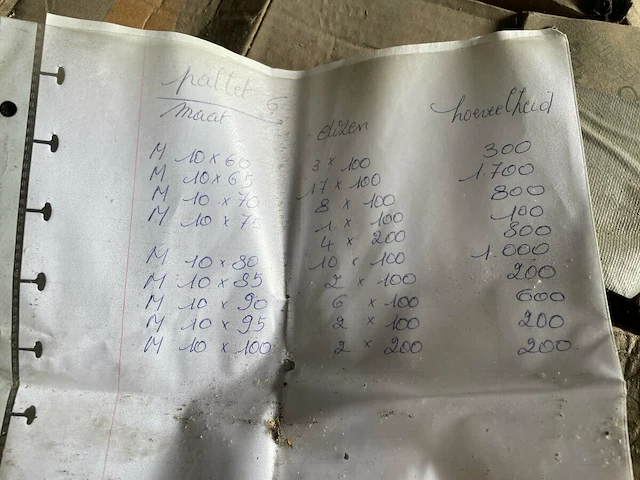 pallet 6
maat dozen hoeveelheid
M 10 x 60 3 x 100 300
M 10 x 65 17 x 100 1.700
M 10 x 70 8 x 100 800
M 10 x 75 1 x 100 100
4 x 200 800
M 10 x 80 10 x 100 1.000
M 10 x 85 2 x 100 200
M 10 x 90 6 x 100 600
M 10 x 95 2 x 100 200
M 10 x 100 2 x 200 200